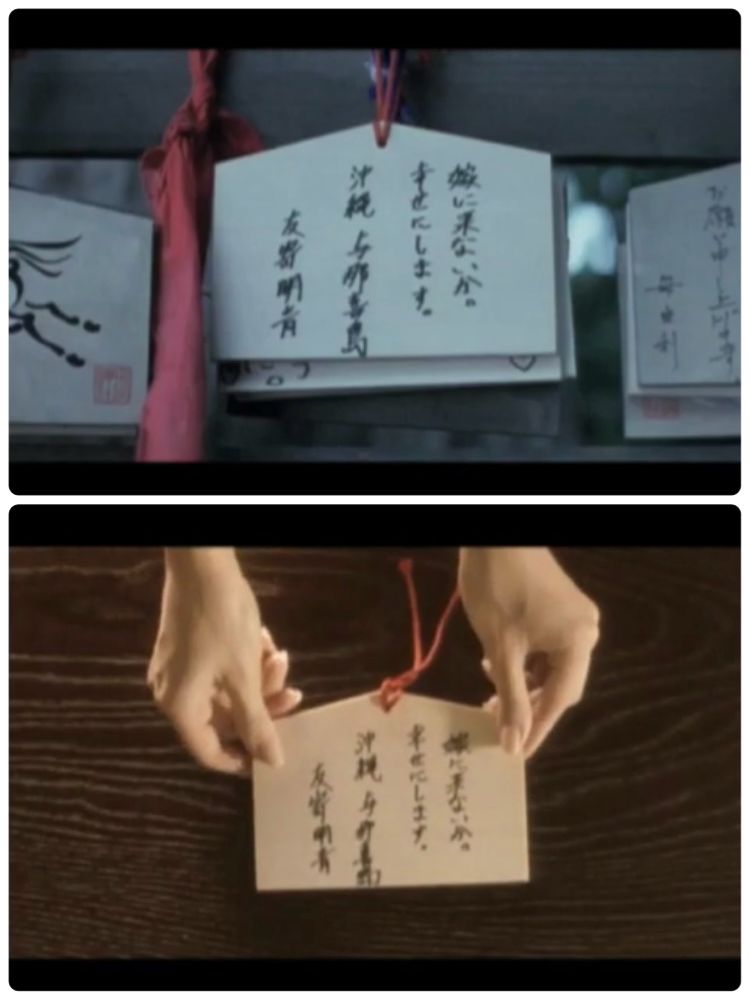 嫁に来ないか。
幸せにします。
沖縄 与那喜島
友寄明青
お願い申し上げます
嫁に来ないか。
幸せにします。
沖縄 与那喜島
友寄明青